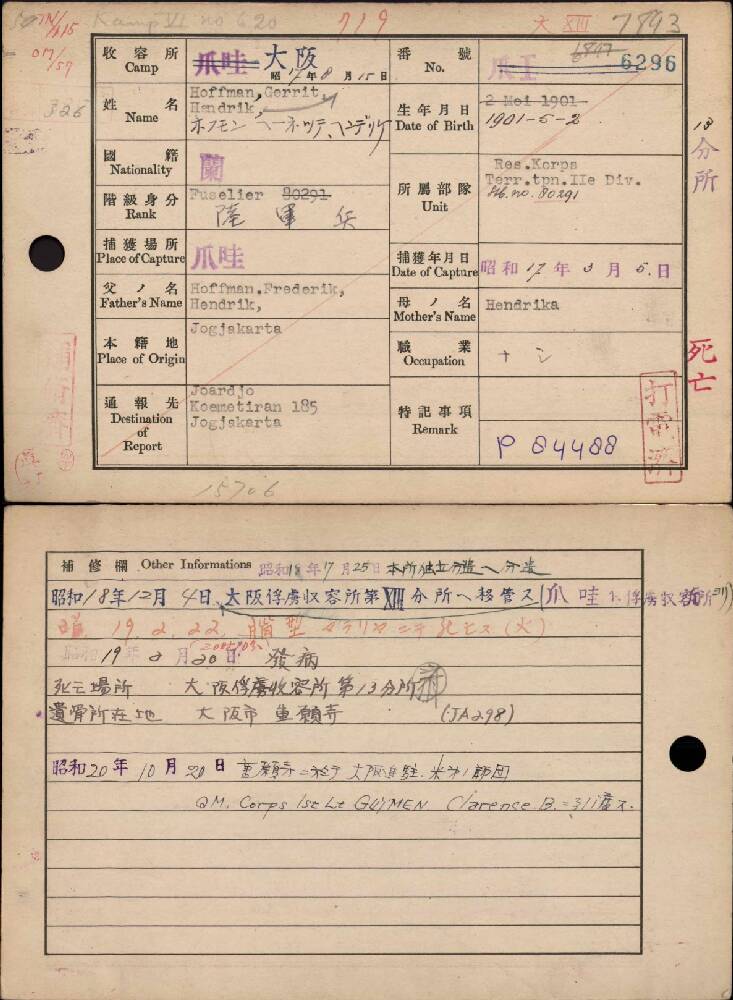 Kamp VI no 620
719
大 XIII 7893
07/59
326
收容所 Camp 爪哇 大阪
昭17年8月15日
番號 No. 爪王 6296
姓名 Name Hoffman, Gerrit, Hendrik,
ホフモン ヘーネツテ、ヘンデリケ
生年月日 Date of Birth 2 Mei 1901
1901-5-2
國籍 Nationality 蘭
階級身分 Rank Fuselier 80291
陸軍兵
所屬部隊 Unit Res.Korps
Terr.tpn.IIe Div.
Stb.no. 80291
13分所
捕獲場所 Place of Capture 爪哇
捕獲年月日 Date of Capture 昭和17年3月5日
父ノ名 Father's Name Hoffman.Frederik,
Hendrik,
母ノ名 Mother's Name Hendrika
本籍地 Place of Origin Jogjakarta
職業 Occupation ナシ
死亡
通報先 Destination of Report Joardjo
Koemetiran 185
Jogjakarta
特記事項 Remark
P 84488
打電済
15706
補修欄 Other Informations 昭和18年17月25日 本所独立分遣へ分遣
昭和18年12月4日、大阪俘虜収容所第XIII分所ヘ移管ス(爪哇
19.2.22. 脳型マラリヤニテ死ス(火)
昭和19年2月20日 発病
死亡場所 大阪俘虜收容所第13分所
遺骨所在地 大阪市 願寺 (JA298)
昭和20年10月20日 大阪進駐 米 師団
QM. Corps 1st Lt GUYMEN Clarence B. ニ引渡ス.